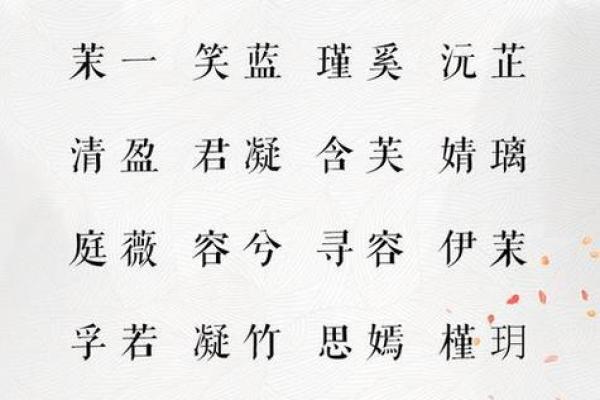 茉一 笑蓝 瑾奚 沅芷
清盈 君凝 含芙 婧璃
庭薇 容兮 寻容 伊茉
孚若 凝竹 思嫣 槿玥